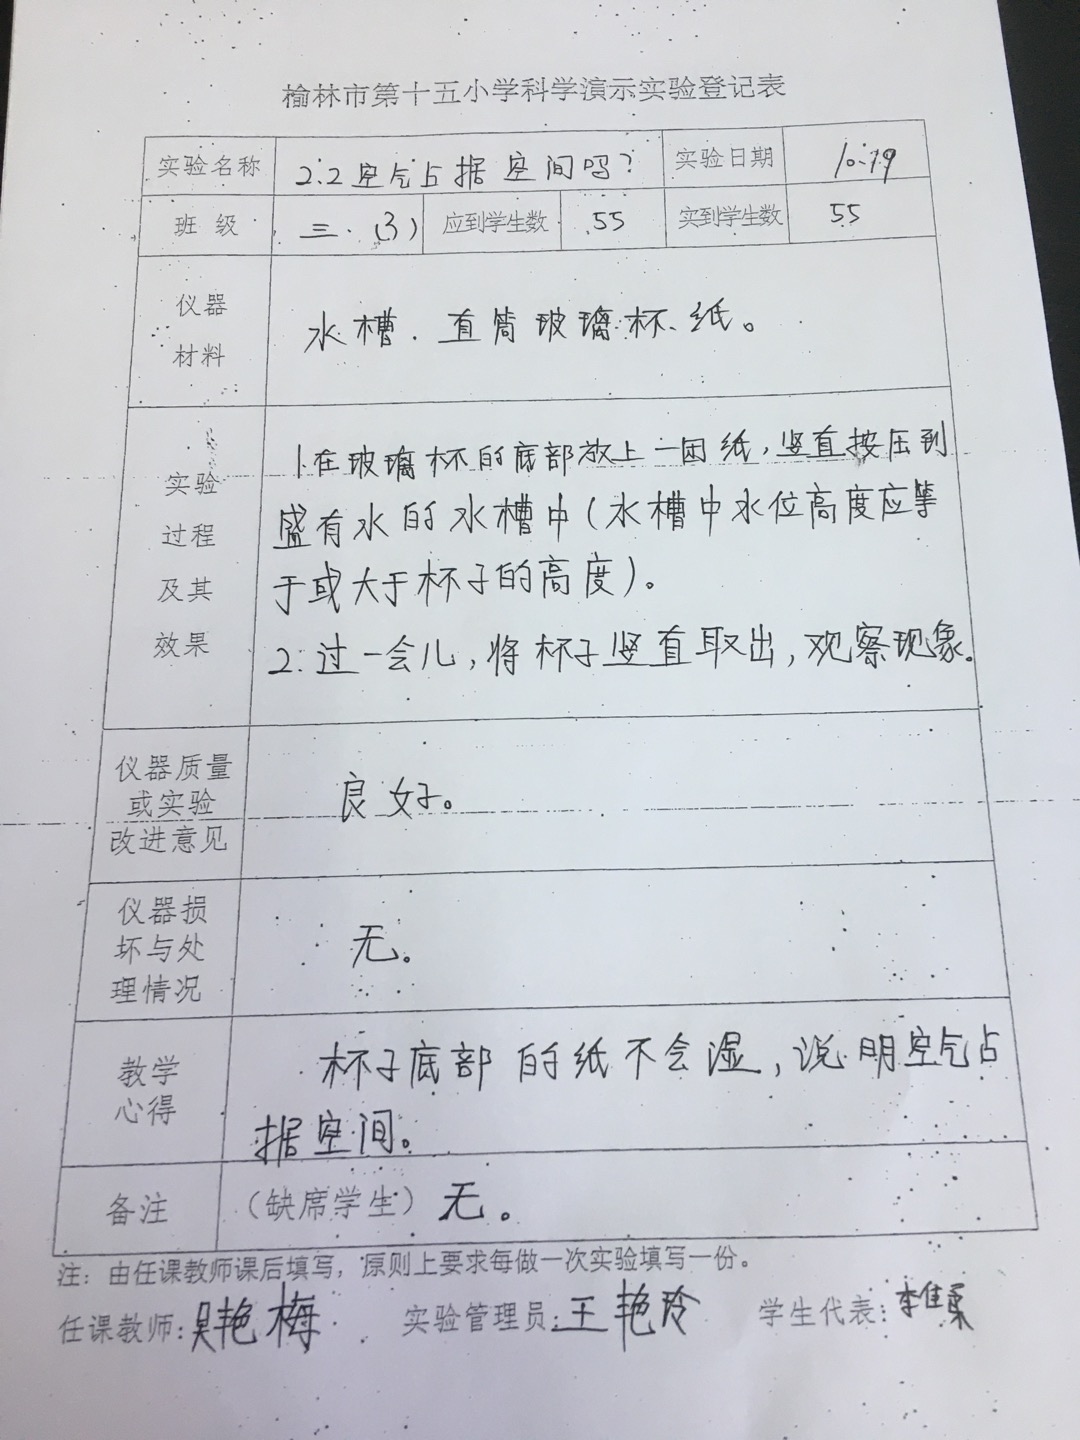 榆林市第十五小学科学演示实验登记表
实验名称 2.2空气占据空间吗? 实验日期 10.19
班级 三.(3) 应到学生数 55 实到学生数 55
仪器
材料
水槽、直筒玻璃杯、纸。
实验
过程
及其
效果
1.在玻璃杯的底部放上一团纸,竖直按压到
盛有水的水槽中(水槽中水位高度应等
于或大于杯子的高度)。
2.过一会儿,将杯子竖直取出,观察现象。
仪器质量
或实验
改进意见
良好。
仪器损
坏与处
理情况
无。
教学
心得
杯子底部的纸不会湿,说明空气占
据空间。
备注 (缺席学生) 无。
注:由任课教师课后填写,原则上要求每做一次实验填写一份。
任课教师:吴艳梅 实验管理员:王艳玲 学生代表:李佳柔